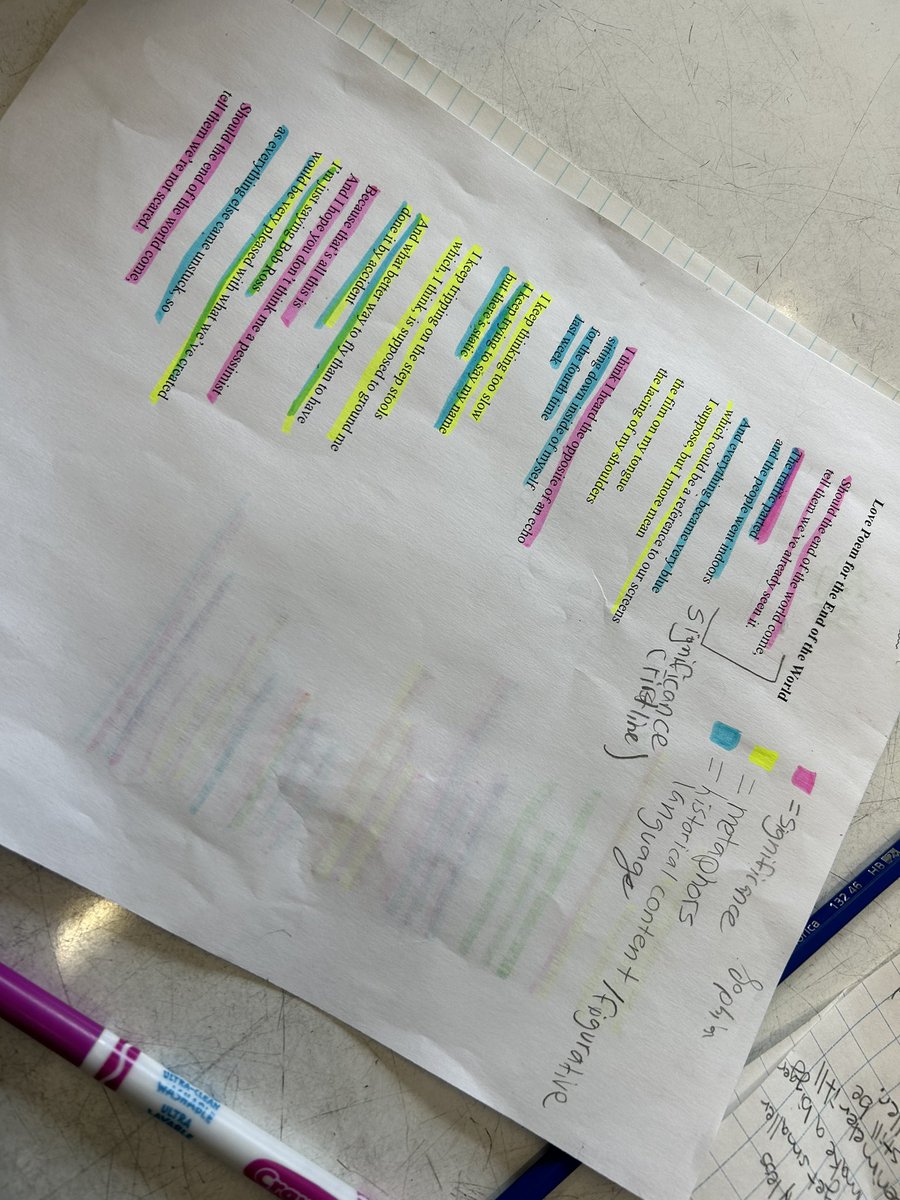 Love Poem for the End of the World
Should the end of the world come,
tell them we've already seen it.
The traffic parted
and the people went indoors
And everything became very blue
which could be a reference to our screens
I suppose, but I more mean
the film on my tongue
the lacing of my shoulders
I think I heard the opposite of an echo
sitting down inside of myself
for the fourth time
last week
I keep thinking too slow
I keep trying to say my name
but there's static
I keep tripping on the step stools
which, I think, is supposed to ground me
And what better way to fly than to have
done it by accident
Because that's all this is
And I hope you don't think me a pessimist
I'm just saying Bob Ross
would be very pleased with what we've created
as everything else came unstuck, so
Should the end of the world come,
tell them we're not scared.
= significance
= metaphors
= historical content / figurative
language
significance
(first line)
Sophia
132 46 HB
ULTRA-CLEAN
WASHABLE
ULTRA
LAVABLE
less
get smaller
make a bigger
still be